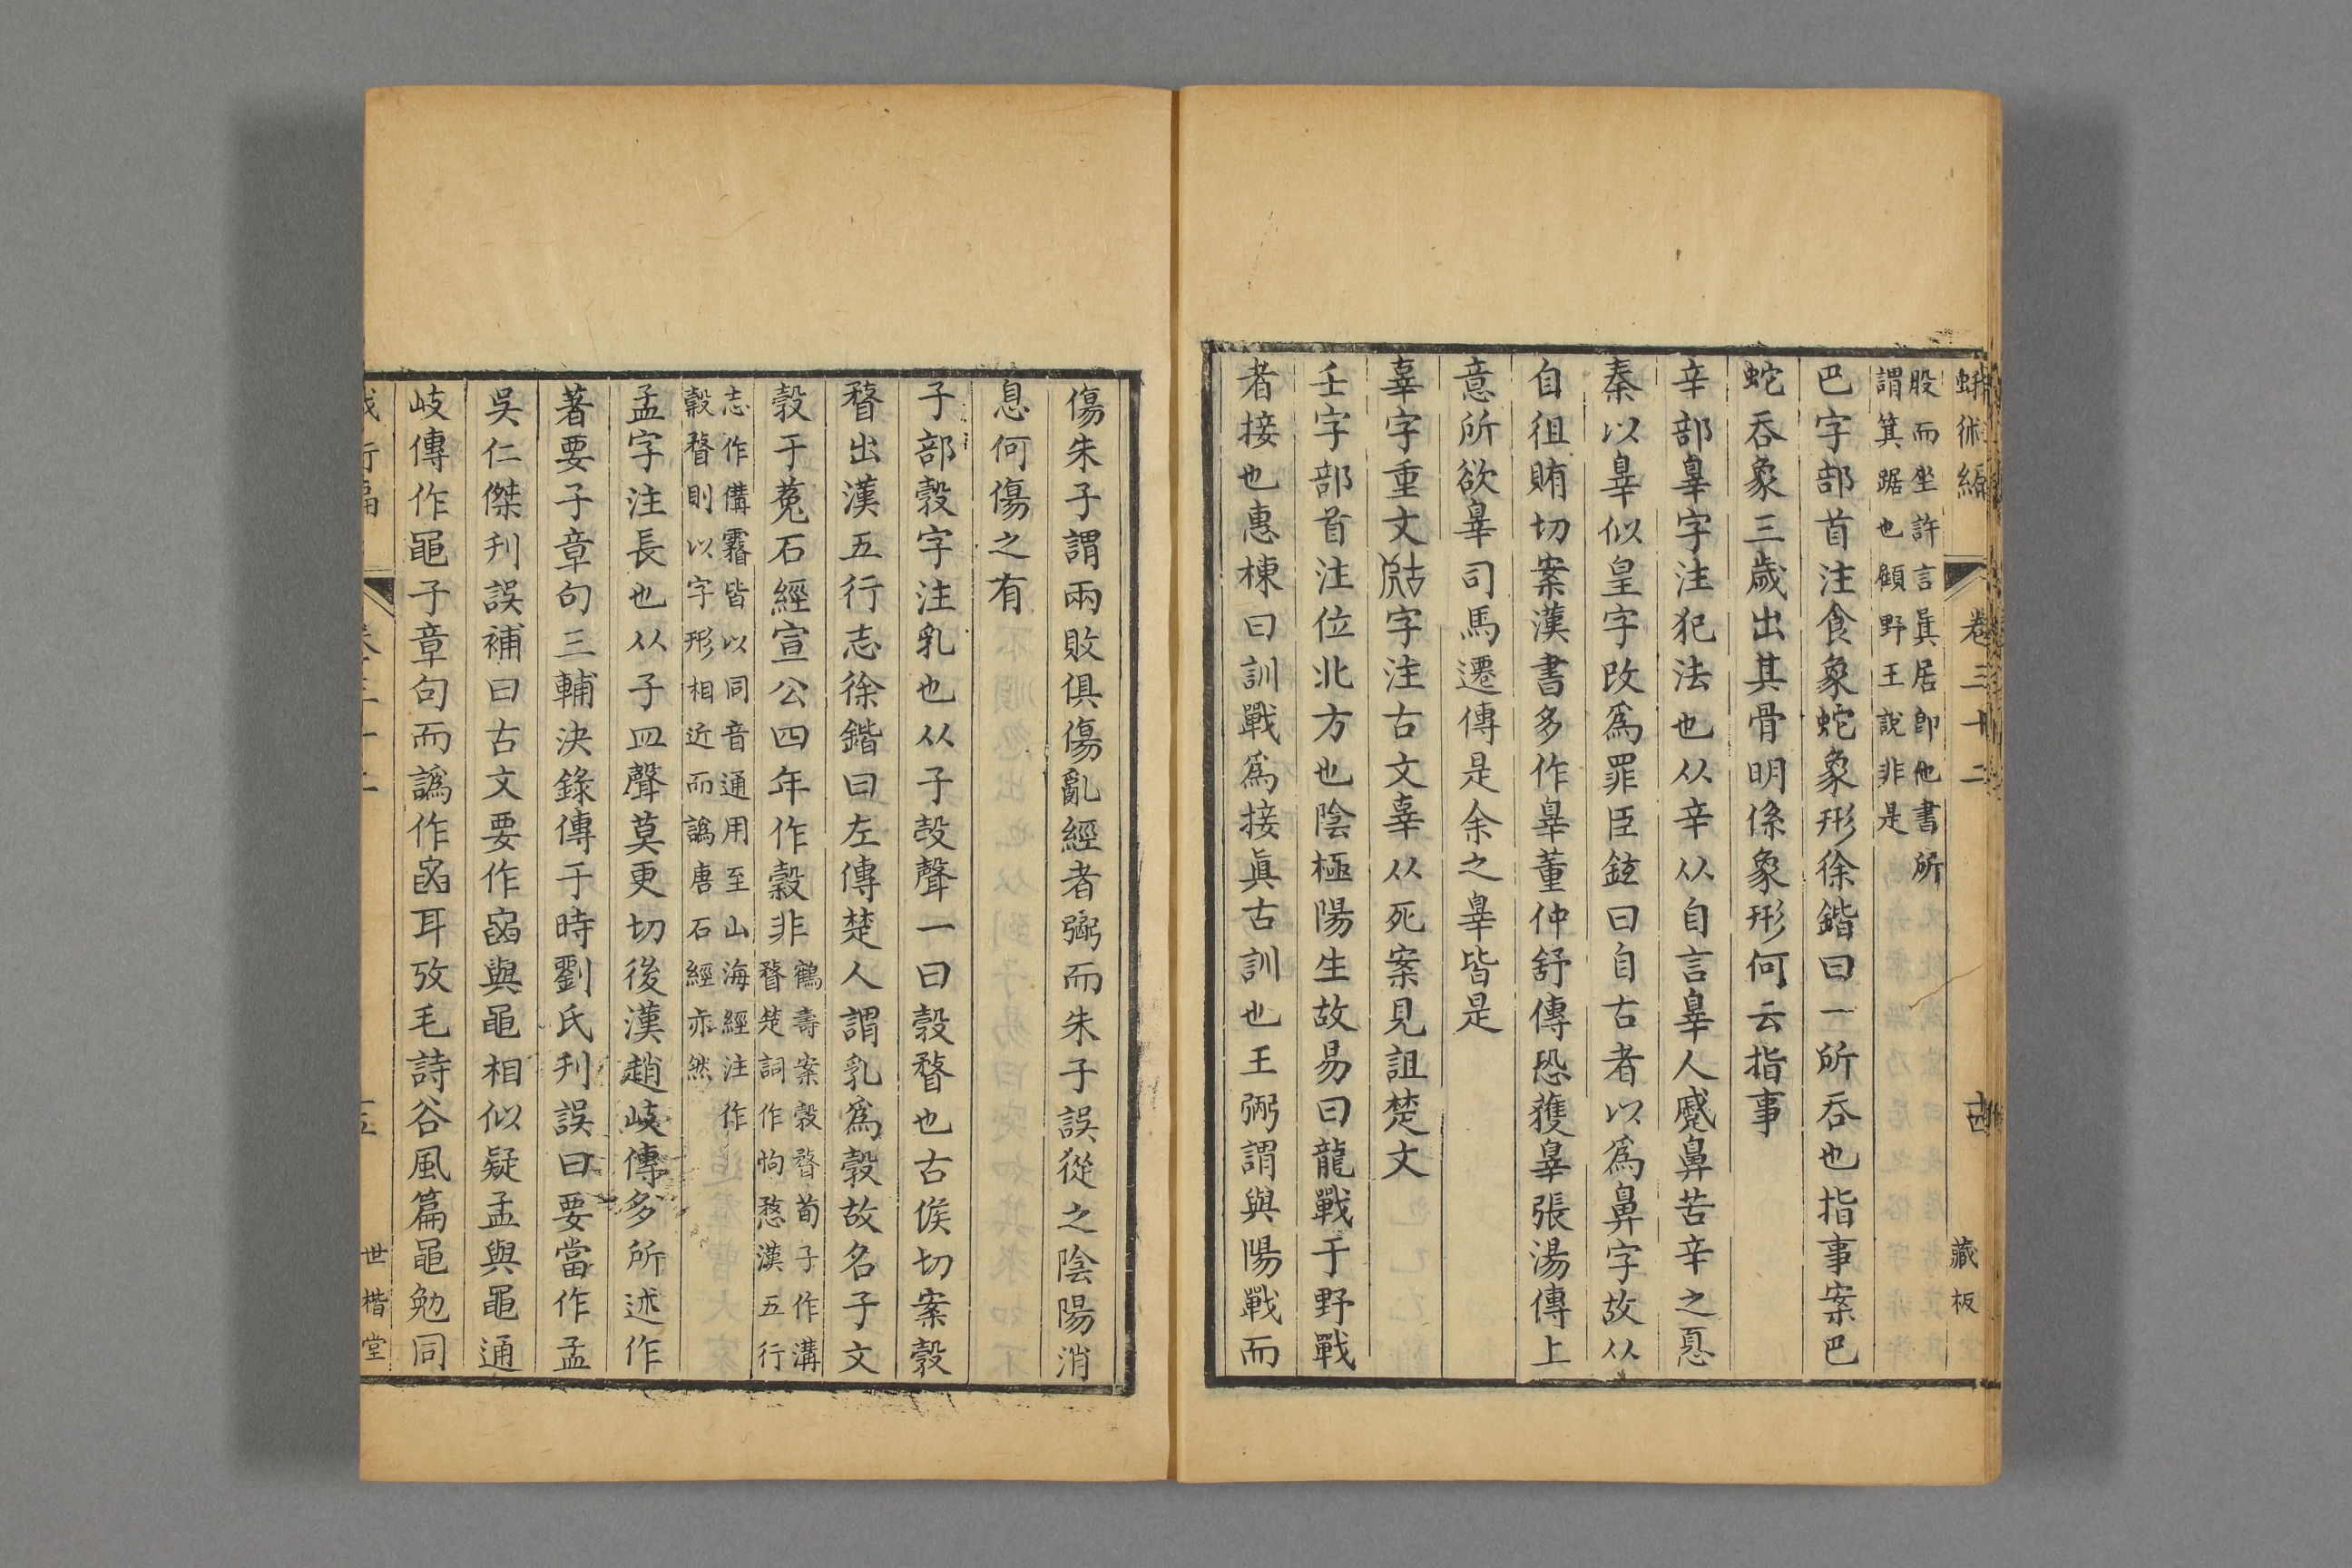 蛾術編 卷三十二 藏板
股而坐許言㠱居卽他書所
謂箕踞也顧野王說非是
巴字部首注食象蛇象形徐鍇曰一所吞也指事案巴
蛇吞象三歲出其骨明係象形何云指事
辛部辠字注犯法也从辛从自言辠人戚鼻苦辛之息
秦以辠似皇字改爲罪臣鉉曰自古者以爲鼻字故从
自徂賄切案漢書多作辠董仲舒傳恐獲辠張湯傳上
意所欲辠司馬遷傳是余之辠皆是
辜字重文𣦻字注古文辜从死案見詛楚文
壬字部首注位北方也陰極陽生故易曰龍戰于野戰
者接也惠棟曰訓戰爲接眞古訓也王弼謂與陽戰而
傷朱子謂兩敗俱傷亂經者弼而朱子誤從之陰陽消
息何傷之有
子部㝅字注乳也从子㱿聲一曰㝅瞀也古候切案㝅
瞀出漢五行志徐鍇曰左傳楚人謂乳爲㝅故名子文
㝅于菟石經宣公四年作穀非
鶴壽案㝅瞀荀子作溝
瞀楚詞作怐愗漢五行
志作傋霿皆以同音通用至山海經注作
㲄瞀則以字形相近而譌唐石經亦然
孟字注長也从子皿聲莫更切後漢趙岐傳多所述作
著要子章句三輔決錄傳于時劉氏刊誤曰要當作孟
吳仁傑刊誤補曰古文要作𡇈與黽相似疑孟與黽通
岐傳作黽子章句而譌作𡇈耳攷毛詩谷風篇黽勉同
世楷堂